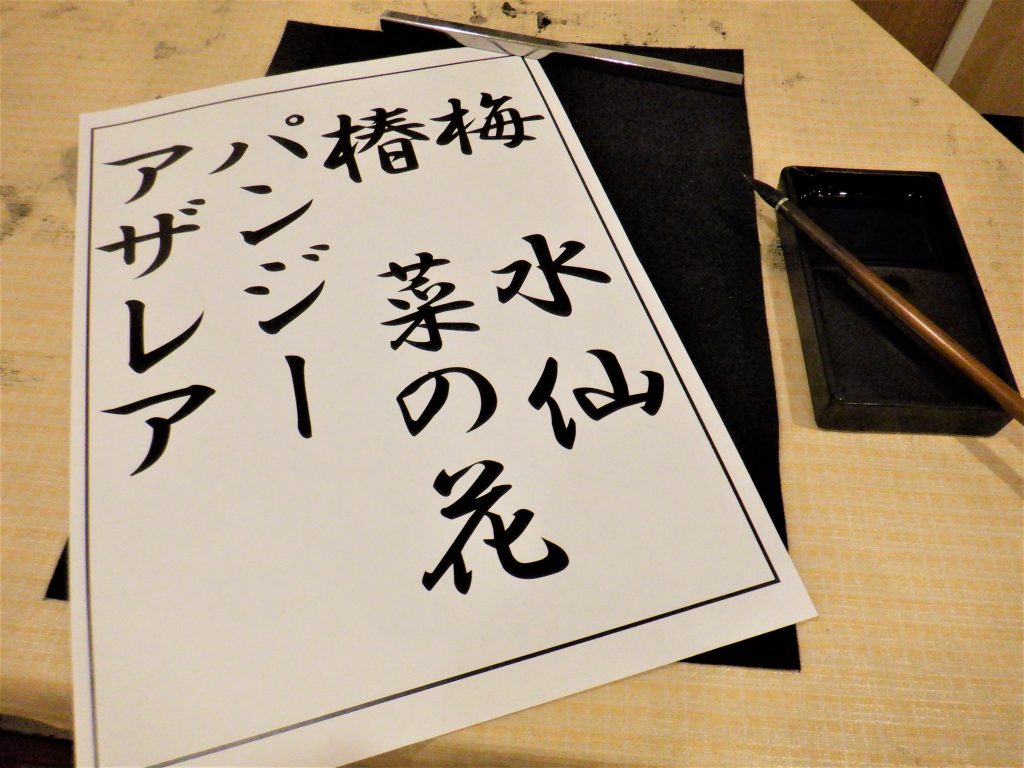 梅　水仙
椿　菜の花
パンジー
アザレア